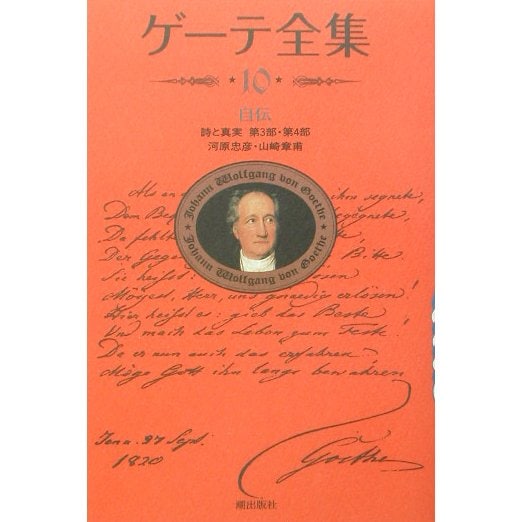 ゲーテ全集
10
自伝
詩と真実 第3部・第4部
河原忠彦・山崎章甫
Johann Wolfgang von Goethe
Johann Wolfgang von Goethe
Als an ihm segnete,
Dem Be
Da fehlt
Der Gege Bitte.
Sie heisst: osen
Möget, Herr, uns gnaedig erlösen!
Hier heisst es: gieb das Beste
Und mach das Leben zum Feste.
Da er nun auch das erfahren
Möge Gott ihn lange bewahren
Jena. 27 Sept.
1820
Goethe
潮出版社